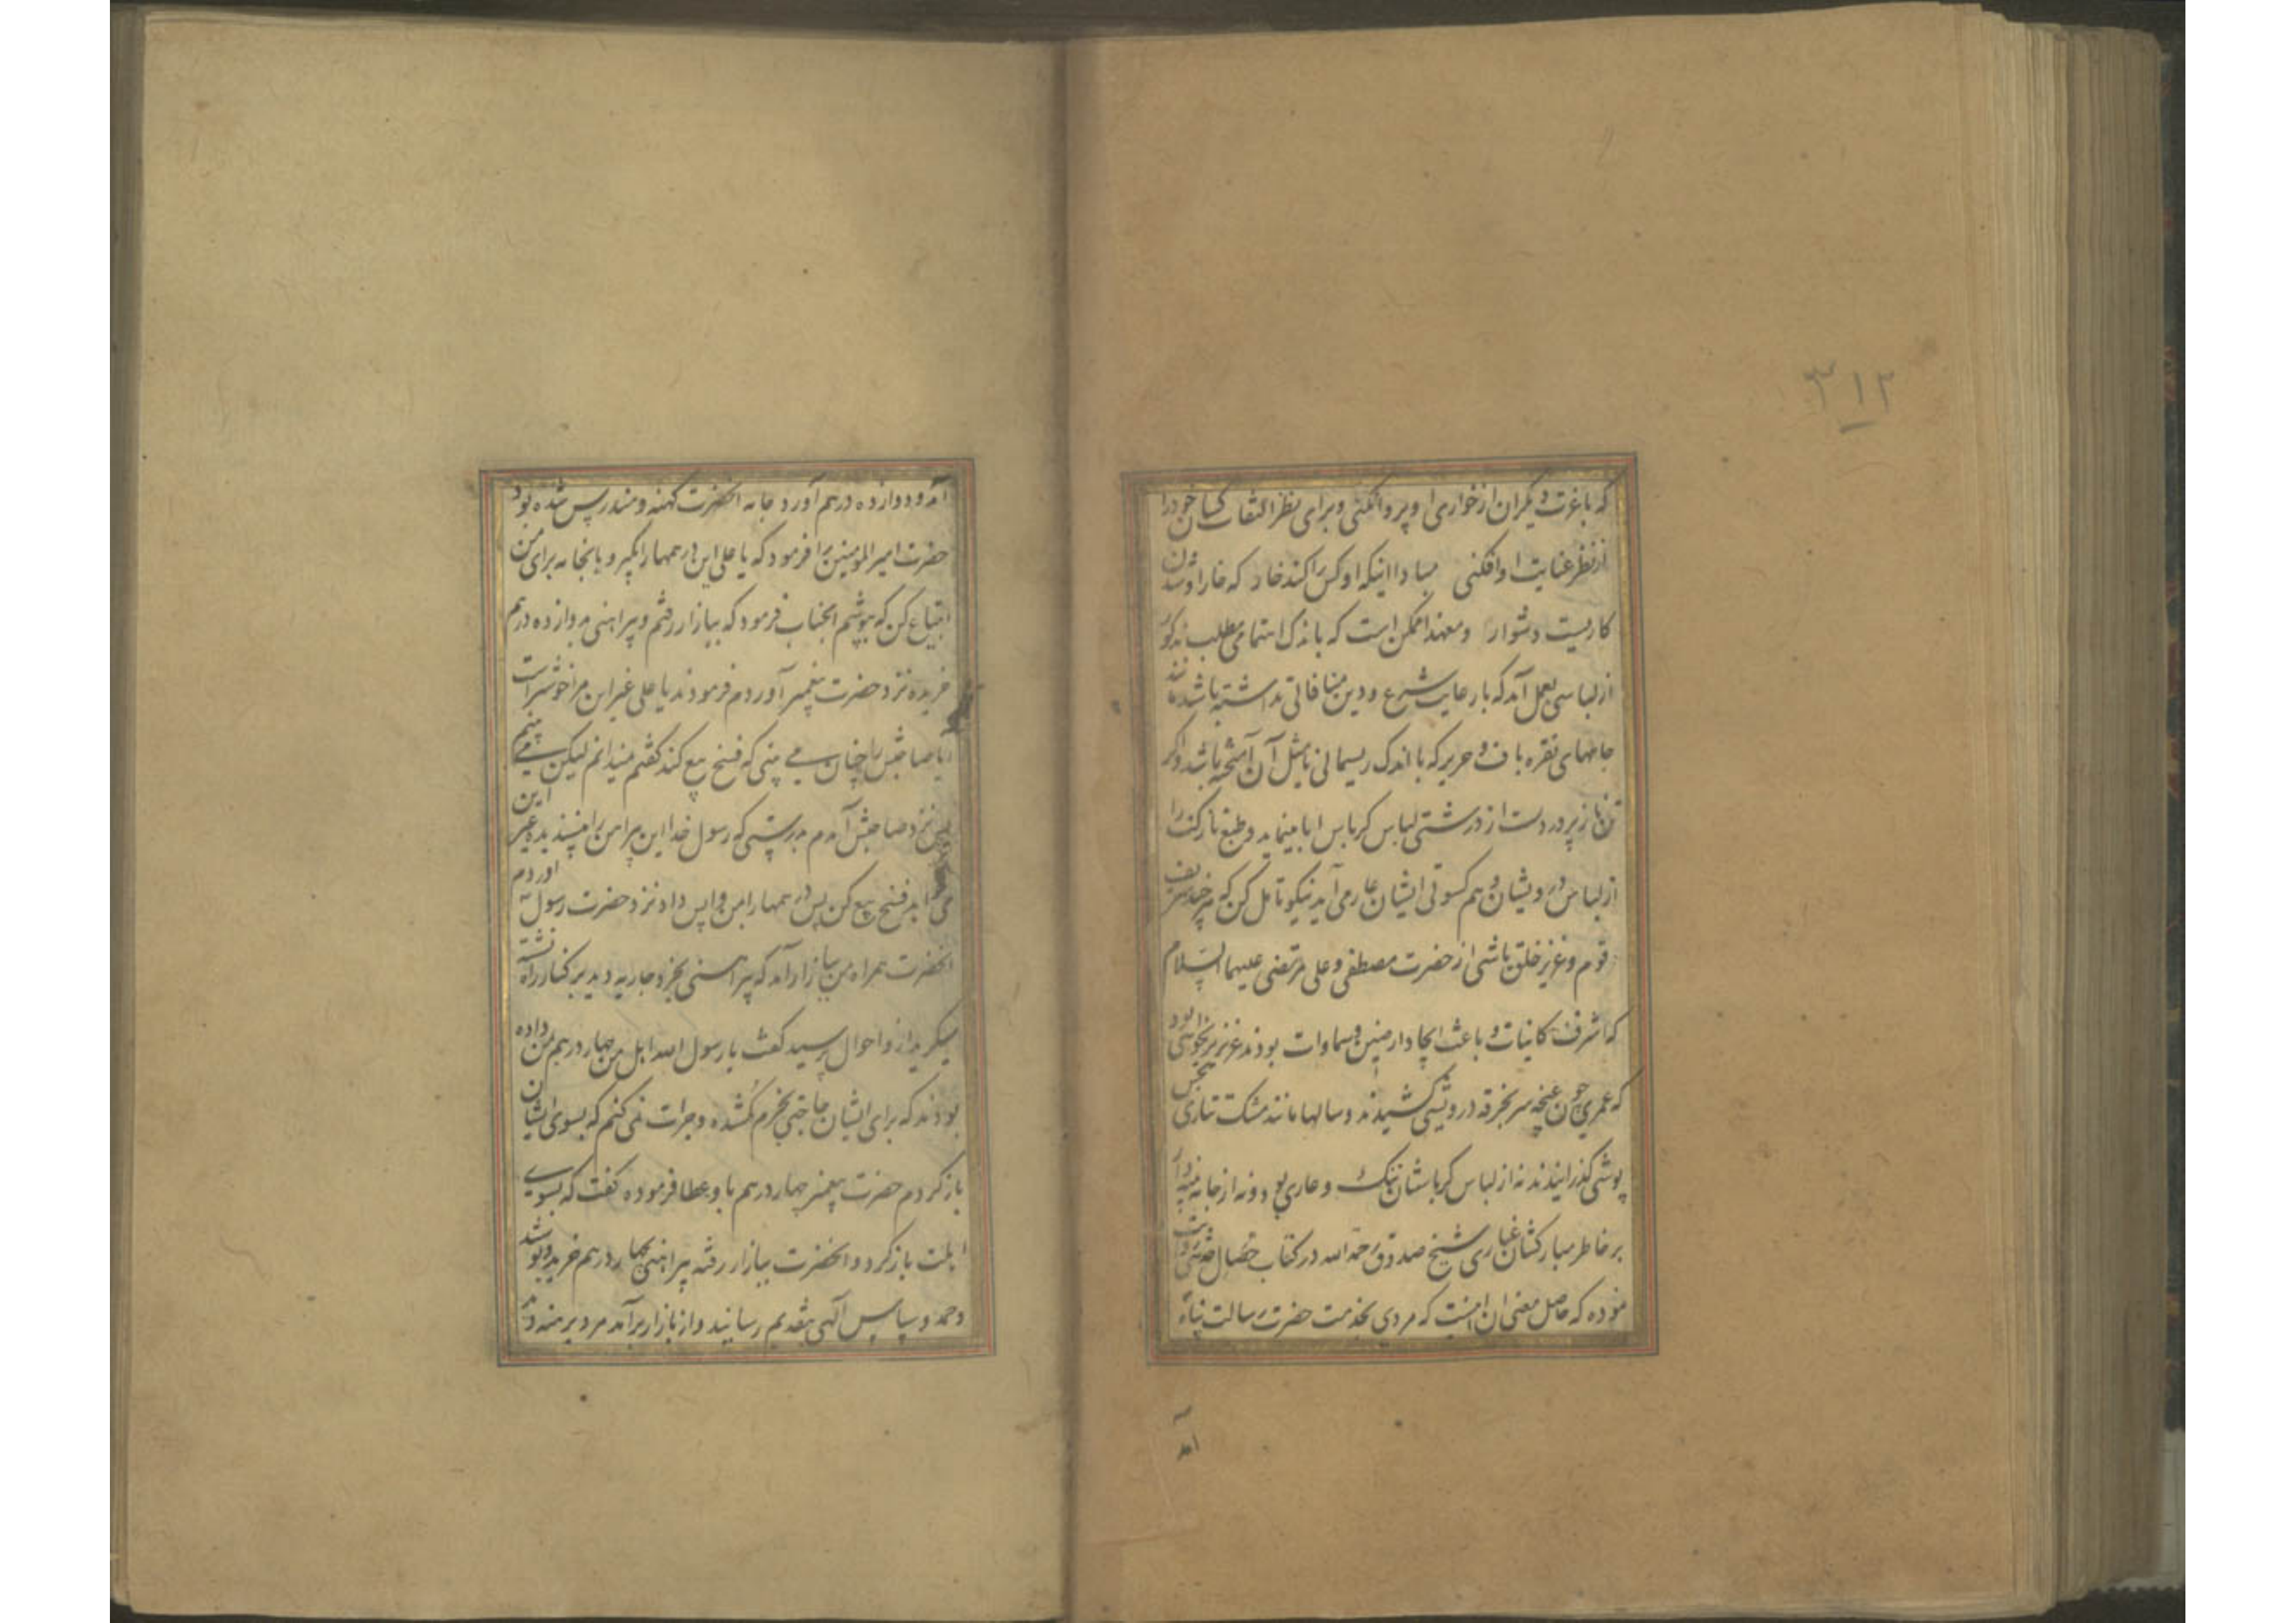 ۳۱۲
که باعزت دیگران از خواری او پروا نکنی و برای نظر التفات کسان خود را
از نظر عنایت او افکنی مبادا اینکه او کس را کند خار که خار او شدن
کاریست دشوار و معهذا ممکن است که باندک اهتمامی مطلب مذکور
از لباسی بعمل آید که با رعایت شرع و دین منافاتی نداشته باشد مانند
جامهای نقره باف و حریر که با اندک ریسمانی یا مثل آن آمیخته باشد و اگر
تن ناز پرور دست از درشتی لباس کرباس ابا مینماید و طبع نازکت را
از لباس درویشان و هم کسوتی ایشان عار می آید نیکو تامل کن که هر چند شریف
قوم و عزیز خلق باشی از حضرت مصطفی و علی مرتضی علیهما السلام
که اشرف کاینات و باعث ایجاد ارضین و سماوات بودند عزیزتر نخواهی بود
که عمری چون غنچه سر بخرقه درویشی کشیدند و سالها مانند مشک تتاری
پوشی گذرانیدند نه از لباس کرباسشان ننگ و عاری بود و نه از جامه
بر خاطر مبارکشان غباری شیخ صدوق رحمه الله در کتاب خصال
نموده که حاصل معنی ان اینست که مردی بخدمت حضرت رسالت پناه
آمد
آمد و دوازده درهم آورد و جامه انحضرت کهنه و مندرس شده بود
حضرت امیر المومنین را فرمود که یا علی این درهمها را بگیر و بانجامه برای من
ابتیاع کن که بپوشم انجناب فرمود که ببازار رفتم و پیراهنی بدوازده درهم
خریده نزد حضرت پیغمبر آوردم فرمودند یا علی غیر این مرا خوشتر است
ایا صاحبش را چنان می بینی که فسخ بیع کند گفتم نمیدانم لیکن می بینم
پس نزد صاحبش آمدم بدرستی که رسول خدا این پیراهن را نپسندید و غیر این
می خواهد فسخ بیع کن پس درهمها را بمن واپس داد نزد حضرت رسول آوردم
انحضرت همراه من ببازار آمد که پیراهنی بخرد جاریه دید بر کنار راه نشسته
میگرید از و احوال پرسید گفت یا رسول الله اهل من چهار درهم بمن داده
بودند که برای ایشان حاجتی بخرم گم شده و جرات نمی کنم که بسوی ایشان
باز گردم حضرت پیغمبر چهار درهم باو عطا فرموده گفت که بسوی
اهلت باز گرد و انحضرت ببازار رفته پیراهنی بچهار درهم خرید و پوشید
و حمد و سپاس الهی بتقدیم رسانید و از بازار برآمد مرد برهنه دید